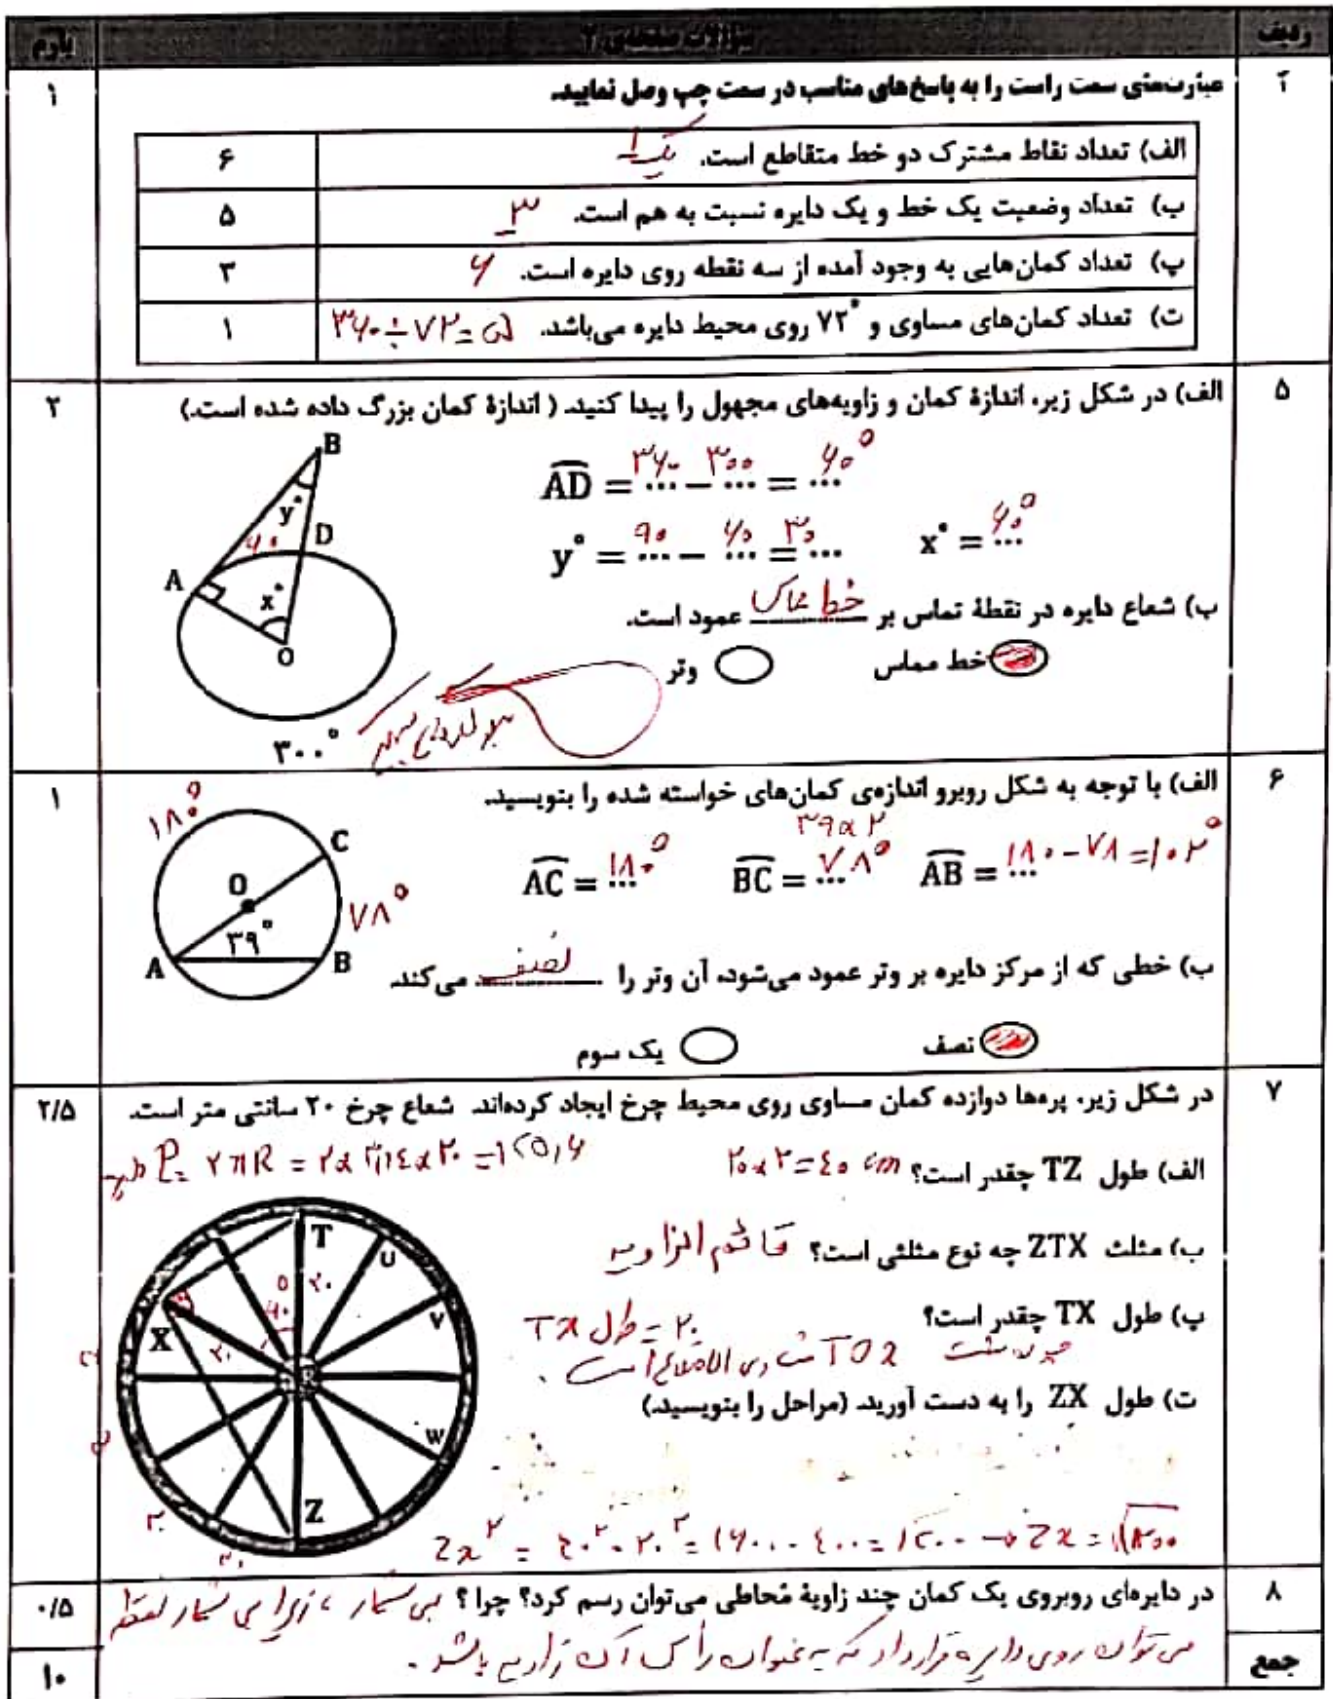 ردیف سؤالات صفحه‌ی ۲ بارم
۴ عبارت‌های سمت راست را به پاسخ‌های مناسب در سمت چپ وصل نمایید. ۱
الف) تعداد نقاط مشترک دو خط متقاطع است. یک ۱ ۶
ب) تعداد وضعیت یک خط و یک دایره نسبت به هم است. ۳ ۵
پ) تعداد کمان‌هایی به وجود آمده از سه نقطه روی دایره است. ۶ ۳
ت) تعداد کمان‌های مساوی و ۷۲° روی محیط دایره می‌باشد. ۳۶۰÷۷۲=۵ ۱
۵ الف) در شکل زیر، اندازهٔ کمان و زاویه‌های مجهول را پیدا کنید. ( اندازهٔ کمان بزرگ داده شده است.) ۲
AD = ۳۶۰ − ۳۰۰ = ۶۰°
y° = ۹۰ − ۶۰ = ۳۰ x° = ۶۰°
B
y°
۶۰ D
A
x°
O
۳۰۰°
ب) شعاع دایره در نقطهٔ تماس بر خط مماس عمود است.
خط مماس وتر
۶ الف) با توجه به شکل روبرو اندازه‌ی کمان‌های خواسته شده را بنویسید. ۱
۳۹×۲
AC = ۱۸۰° BC = ۷۸° AB = ۱۸۰-۷۸=۱۰۲°
۱۸۰°
C
O
۷۸°
۳۹°
A B
ب) خطی که از مرکز دایره بر وتر عمود می‌شود، آن وتر را نصف می‌کند.
نصف یک سوم
۷ در شکل زیر، پره‌ها دوازده کمان مساوی روی محیط چرخ ایجاد کرده‌اند. شعاع چرخ ۲۰ سانتی متر است. ۲/۵
P= ۲πR = ۲×۳,۱٤×۲۰ =۱۲۵,۶
الف) طول TZ چقدر است؟ ۲۰×۲=٤۰ cm
ب) مثلث ZTX چه نوع مثلثی است؟ قائم الزاویه
پ) طول TX چقدر است؟ ۲۰ = طول TX
چون مثلث TOX متساوی الاضلاع است.
ت) طول ZX را به دست آورید. (مراحل را بنویسید.)
T
U
V
۵ ۲۰
۶۰
X
۲۰
W
Z
۳۰
۳۰
Zx² = ٤۰² - ۲۰² = ۱۶۰۰-٤۰۰=۱۲۰۰ → Zx = √۱۲۰۰
۸ در دایره‌ای روبروی یک کمان چند زاویهٔ مُحاطی می‌توان رسم کرد؟ چرا؟ بی شمار ، زیرا بی شمار نقطه ۰/۵
می توان روی دایره قرار داد که به عنوان رأس آن زاویه باشد.
جمع ۱۰